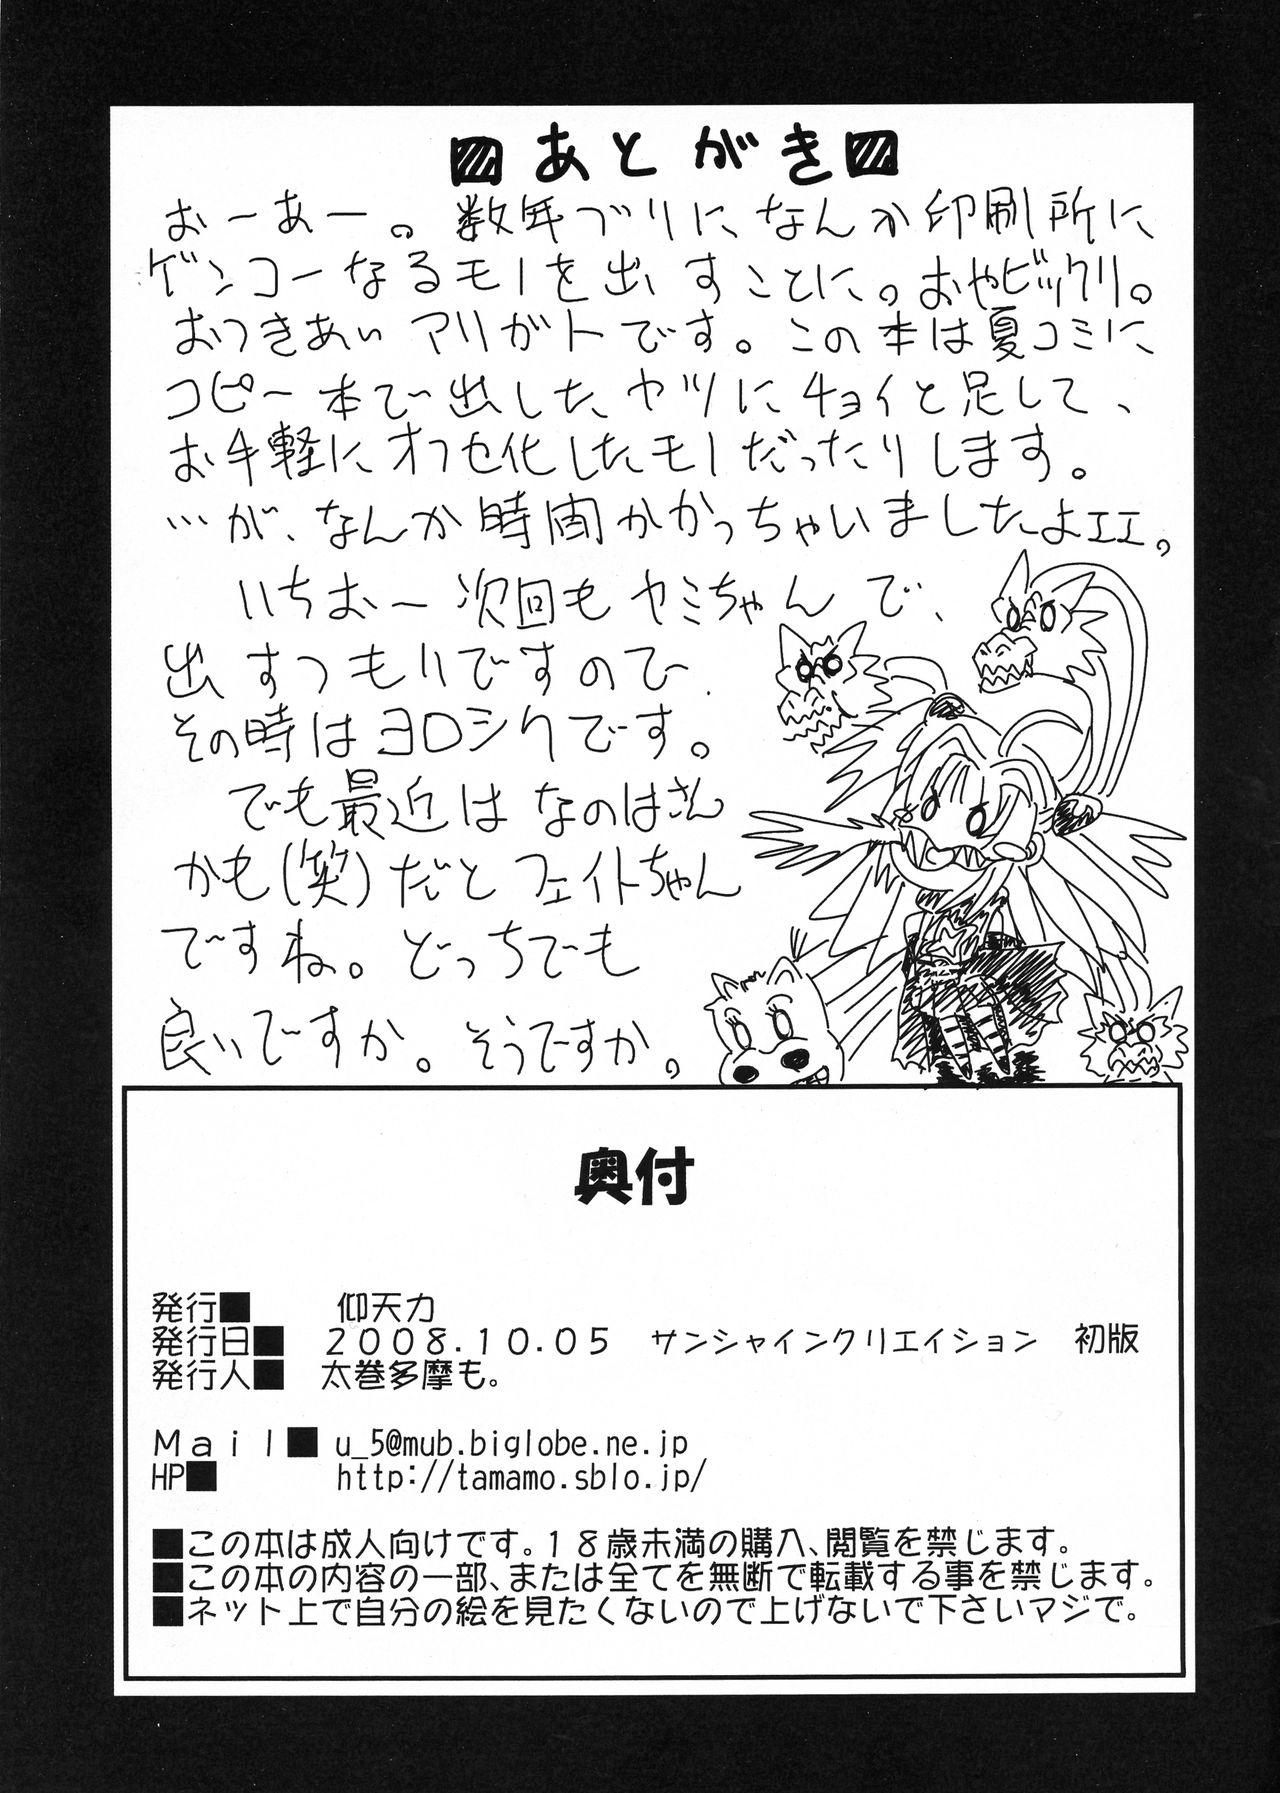 ■あとがき■
おーあー。数年ブリに、なんか印刷所に
ゲンコーなるモノを出すことに。おやビックリ。
おつきあい アリガトです。この本は夏コミに
コピー本で出した、ヤツにチョイと足して、
お手軽にオフセ化したモノだったりします。
…が、なんか時間かかっちゃいましたよエエ。
いちおー次回もヤミちゃんで、
出すつもりですので、
その時はヨロシクです。
でも最近はなのはさん
かも(笑)だとフェイトちゃん
ですね。どっちでも
良いですか。そうですか。
奥付
発行■ 仰天力
発行日■ 2008.10.05 サンシャインクリエイション 初版
発行人■ 太巻多摩も。
Mail■ u_5@mub.biglobe.ne.jp
HP■ http://tamamo.sblo.jp/
■この本は成人向けです。18歳未満の購入、閲覧を禁じます。
■この本の内容の一部、または全てを無断で転載する事を禁じます。
■ネット上で自分の絵を見たくないので上げないで下さいマジで。